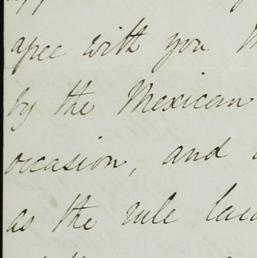 agree with you
by the Mexican
occasion, and
as the rule laid